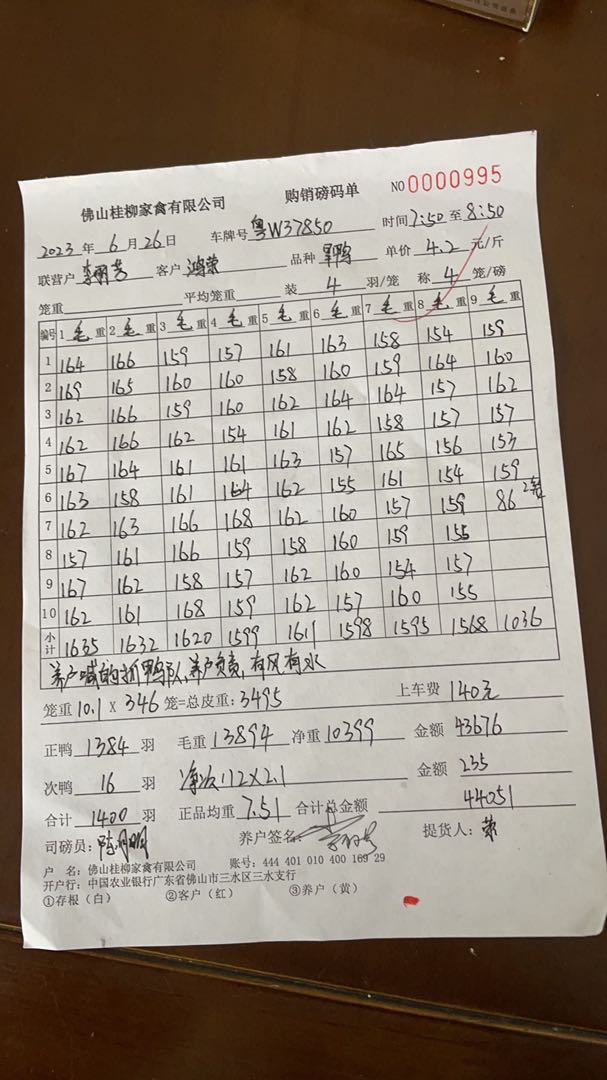 佛山桂柳家禽有限公司 购销磅码单 NO 0000995
2023 年 6 月 26 日 车牌号 粤W37850 时间 7:50 至 8:50
联营户 李丽芳 客户 鸿荣 品种 单价 4.2 元/斤
笼重 平均笼重 装 4 羽/笼 称 4 笼/磅
编号 1 毛 重 2 毛 重 3 毛 重 4 毛 重 5 毛 重 6 毛 重 7 毛 重 8 毛 重 9 毛 重
1 164 166 159 157 161 163 158 154 159
2 169 165 160 160 158 160 159 164 160
3 162 166 159 160 162 164 164 157 162
4 162 166 162 154 161 162 158 157 157
5 167 164 161 161 163 157 165 156 153
6 163 158 161 164 162 155 161 154 159
7 162 163 166 168 162 160 157 159 86 2笼
8 157 161 166 159 158 160 159 155
9 167 162 158 157 162 160 154 157
10 162 161 168 159 162 157 160 155
小计 1635 1632 1620 1599 1611 1598 1595 1568 1036
养户喊的抓鸭队,养户负责,有风有水
笼重 10.1 X 346 笼=总皮重: 3495 上车费 140元
正鸭 1384 羽 毛重 13894 净重 10399 金额 43676
次鸭 16 羽 净次112X2.1 金额 235
合计 1400 羽 正品均重 7.51 合计总金额 44051
司磅员: 陈明明 养户签名: 提货人: 荣
户 名: 佛山桂柳家禽有限公司 账号: 444 401 010 400 169 29
开户行: 中国农业银行广东省佛山市三水区三水支行
①存根(白) ②客户(红) ③养户(黄)